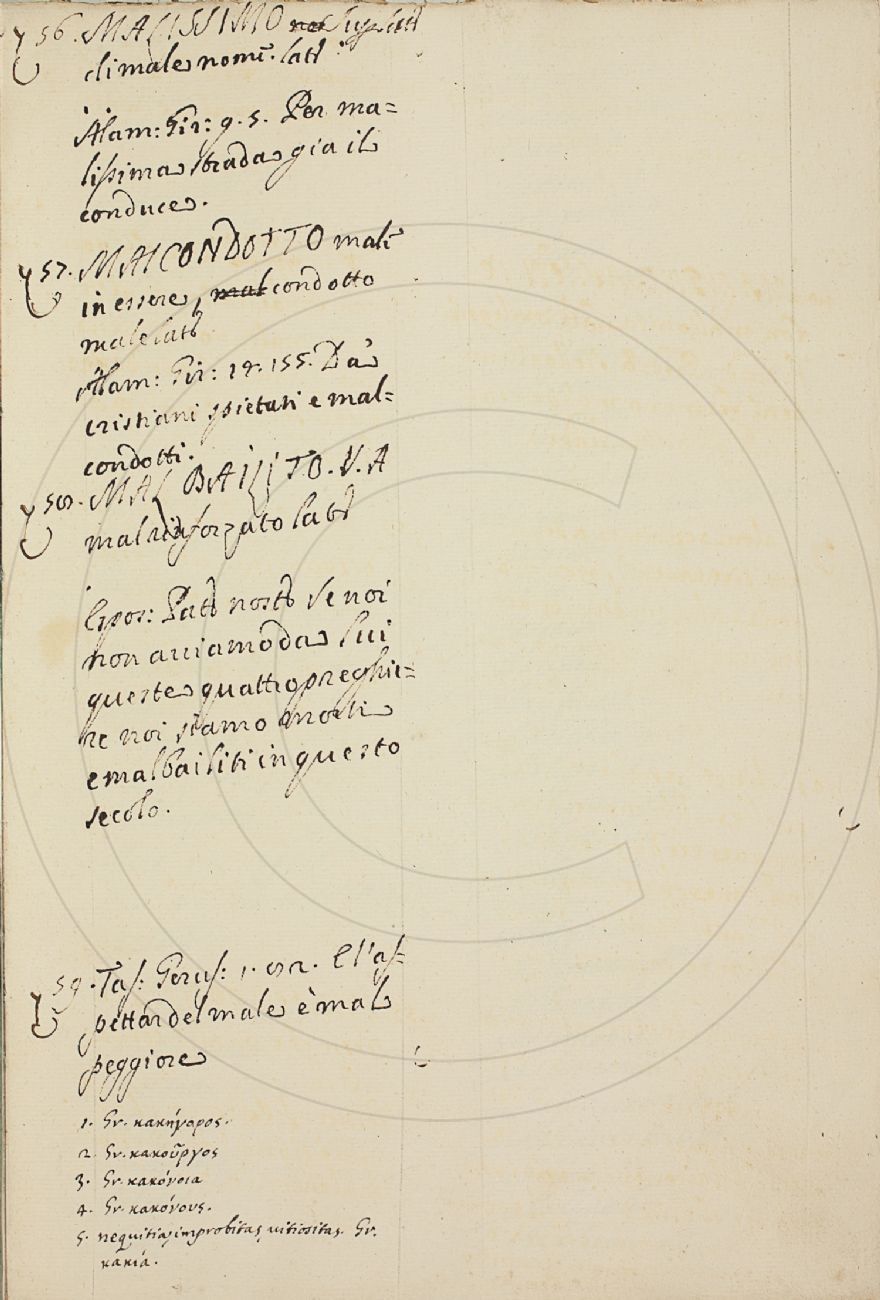 56. MALISSIMO ~~nel~~ Superlatt
di male nome. latt
Alam: Gir: 9. 5. Per ma=
lissima strada gia il
conduce.
57. MALCONDOTTO male
in essere, ~~mal~~ condotto
male latt
Alam: Gir: 19. 155. Da
cristiani spietati e mal=
condotti.
58. MAL BAILITO. V. A
mal rinforzato latt
Espos: Patt nostt Se noi
non aviamo da lui
queste quattro preghie=
re noi siamo morti
e malbailiti in questo
secolo.
59. Tass: Gerus: 1. 82. E l'as=
pettar del male è mal
peggiore
1. Gr. κακήγορος.
2. Gr. κακοῦργος
3. Gr. κακόνοια
4. Gr. κακόνους.
5. nequitia, improbitas, vitiositas. Gr.
κακία.